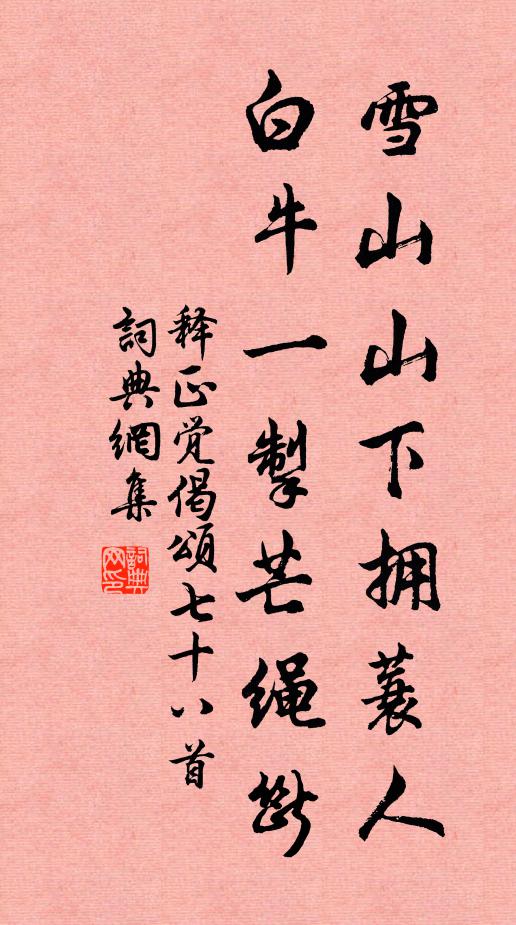 雪山山下拥蓑人
白牛一掣芒绳断
释正觉偈颂七十八首
詞典網集
詞典网印